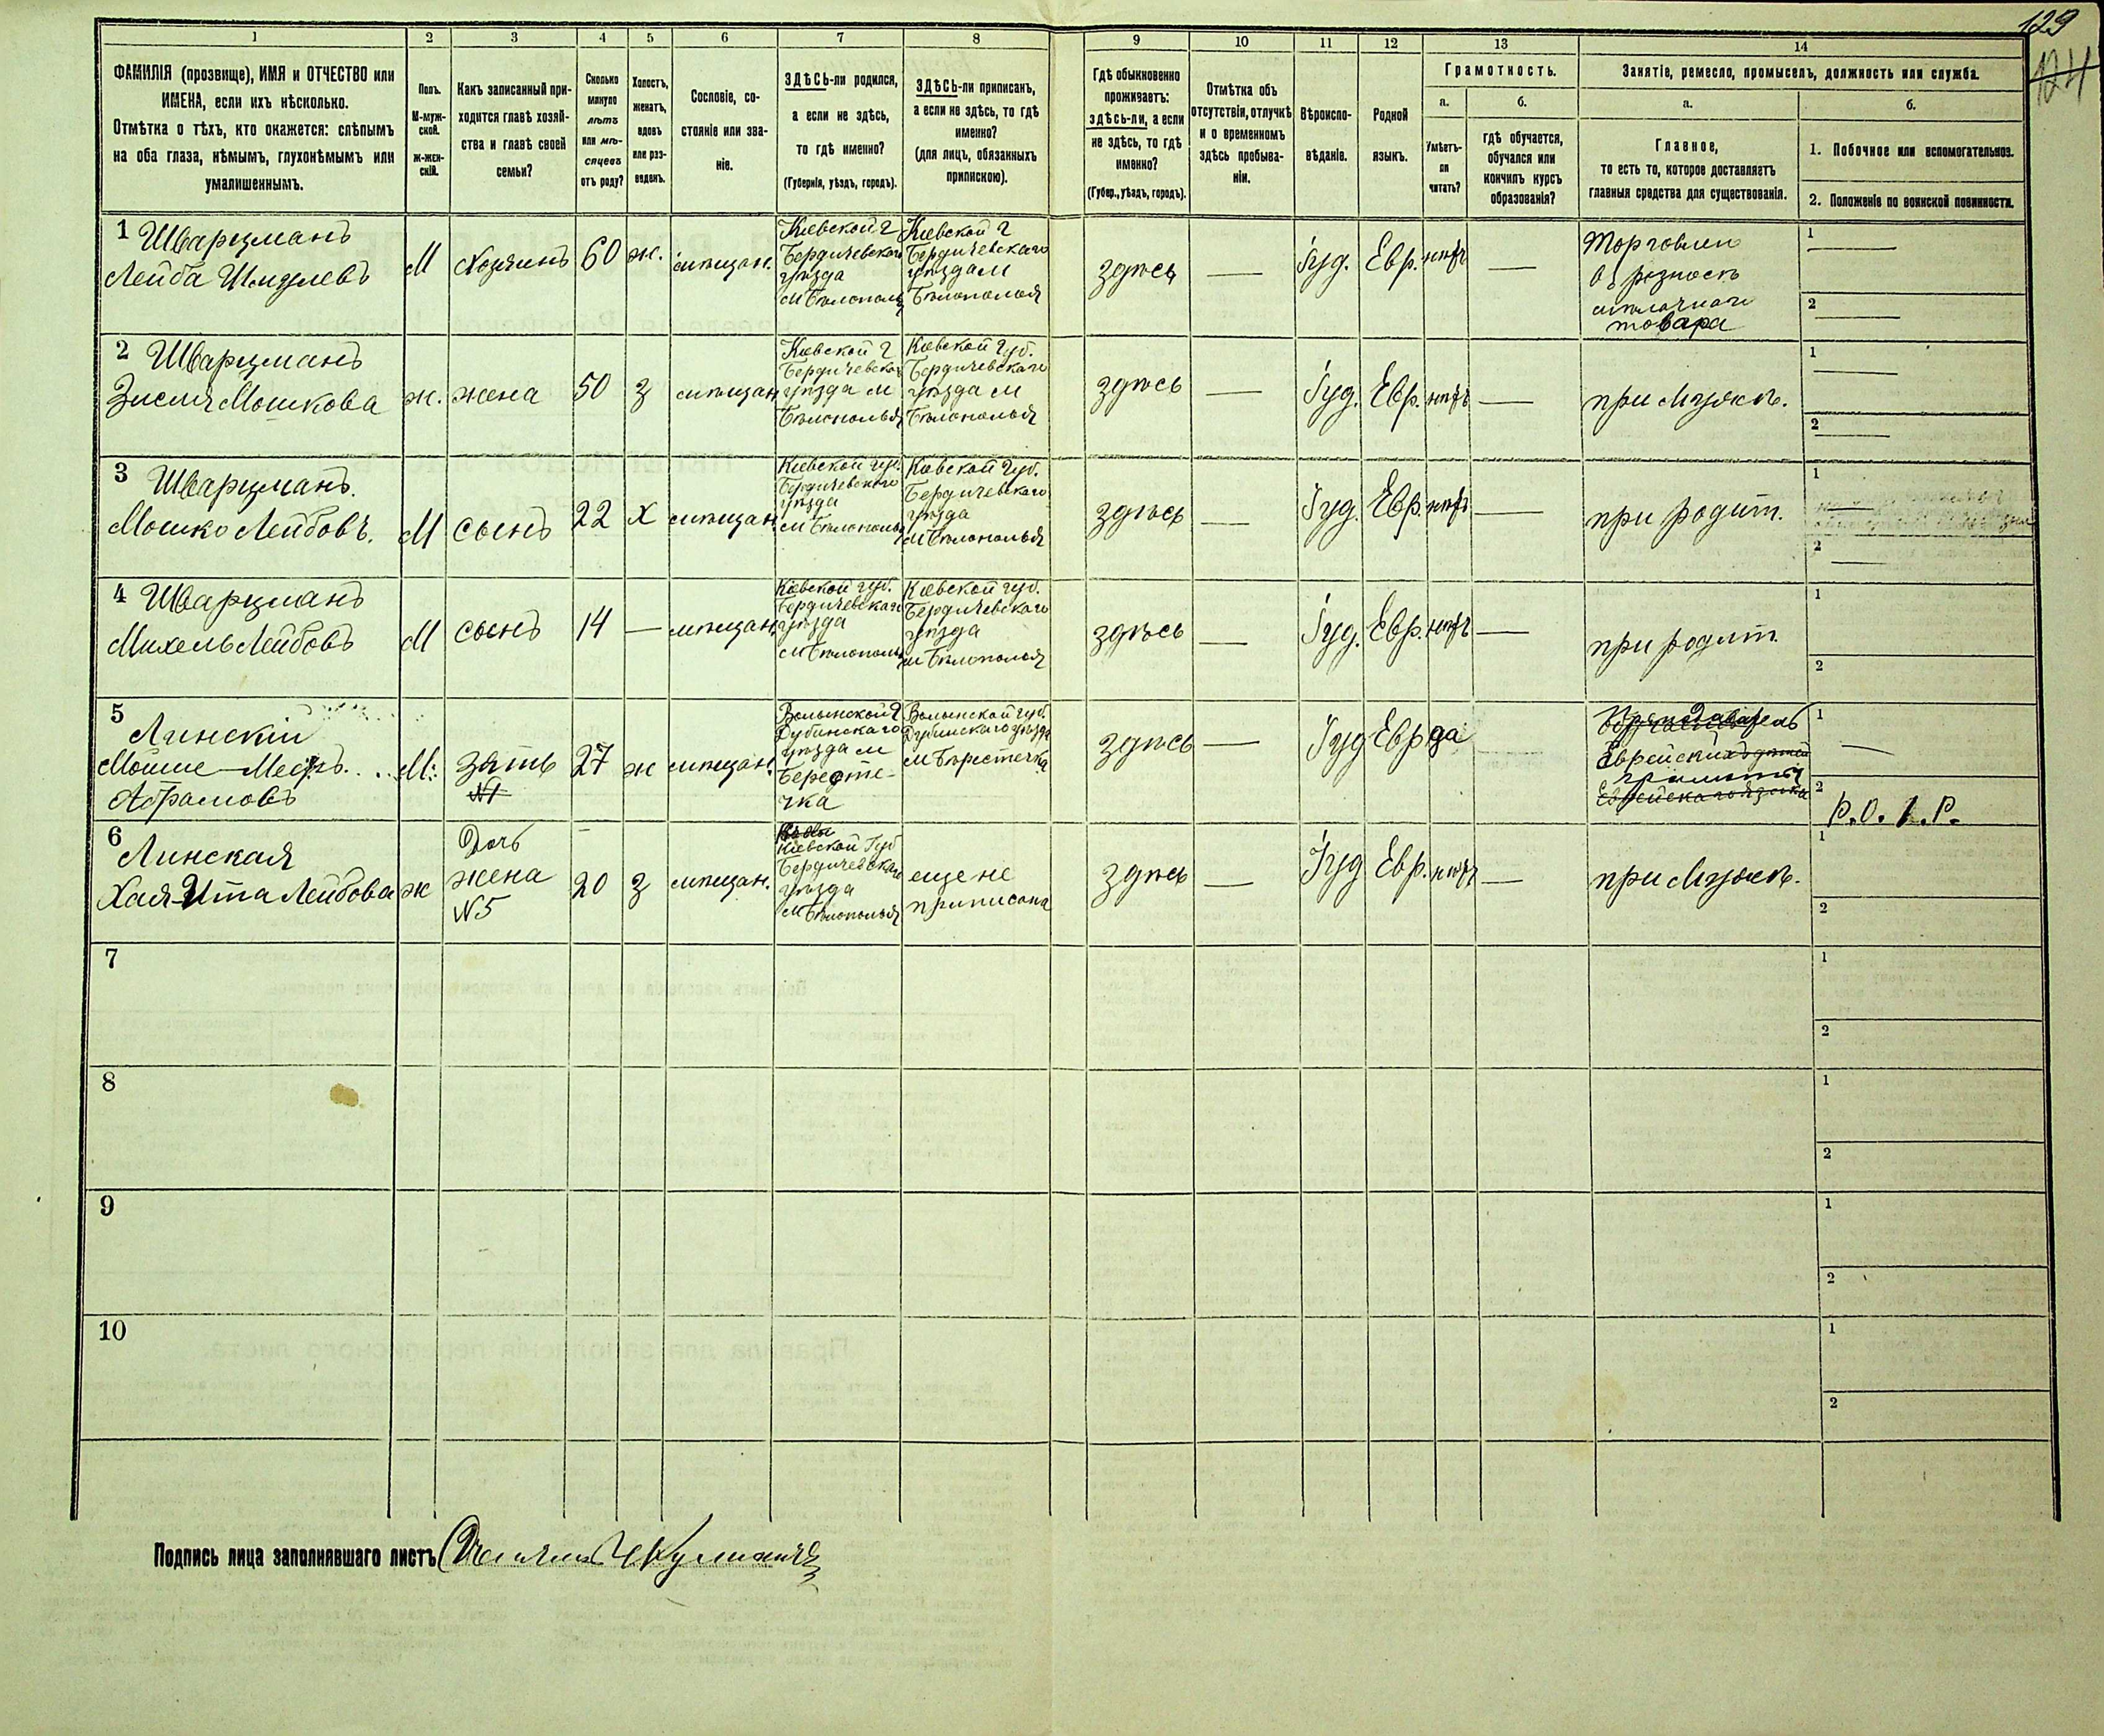 129
124
1 2 3 4 5 6 7 8 9 10 11 12 13 14
ФАМИЛІЯ (прозвище), ИМЯ и ОТЧЕСТВО или
ИМЕНА, если ихъ нѣсколько.
Отмѣтка о тѣхъ, кто окажется: слѣпымъ
на оба глаза, нѣмымъ, глухонѣмымъ или
умалишеннымъ.
Полъ.
М-муж-
ской.
Ж-жен-
скій.
Какъ записанный при-
ходится главѣ хозяй-
ства и главѣ своей
семьи?
Сколько
минуло
лѣтъ
или мѣ-
сяцевъ
отъ роду?
Холостъ,
женатъ,
вдовъ
или раз-
веденъ.
Сословіе, со-
стояніе или зва-
ніе.
ЗДѢСЬ-ли родился,
а если не здѣсь,
то гдѣ именно?
(Губернія, уѣздъ, городъ).
ЗДѢСЬ-ли приписанъ,
а если не здѣсь, то гдѣ
именно?
(для лицъ, обязанныхъ
припискою).
Гдѣ обыкновенно
проживаетъ:
здѣсь-ли, а если
не здѣсь, то гдѣ
именно?
(Губер., уѣздъ, городъ).
Отмѣтка объ
отсутствіи, отлучкѣ
и о временномъ
здѣсь пребыва-
ніи.
Вѣроиспо-
вѣданіе.
Родной
языкъ.
Грамотность.
а.
Умѣетъ-
ли
читать?
б.
гдѣ обучается,
обучался или
кончилъ курсъ
образованія?
Занятіе, ремесло, промыселъ, должность или служба.
а.
Главное,
то есть то, которое доставляетъ
главныя средства для существованія.
б.
1. Побочное или вспомогательное.
2. Положеніе по воинской повинности.
1 Шварцманъ
Лейба Шмулевъ
М
Хозяинъ
60
ж.
мѣщан.
Кіевской г
Бердичевскаго
уѣзда
м Бѣлополья
Кіевской г
Бердичевскаго
уѣзда м
Бѣлополья
здѣсь
—
Іуд.
Евр.
нѣтъ
—
Торговлею
въ розность
мѣлочнаго
товара
1 —
2 —
2 Шварцманъ
Зисля Мошкова
ж.
жена
50
З
мѣщан
Кіевской г
Бердичевскаго
уѣзда м
Бѣлополья
Кіевской губ.
Бердичевскаго
уѣзда м
Бѣлополья
здѣсь
—
Іуд.
Евр.
нѣтъ
—
при Мужѣ.
1 —
2 —
3 Шварцманъ.
Мошко Лейбовъ.
М
сынъ
22
Х
мѣщан.
Кіевской губ.
Бердичевскаго
уѣзда
м Бѣлополья
Кіевской Губ.
Бердичевскаго
уѣзда
м Бѣлополья
здѣсь
—
Іуд.
Евр.
нѣтъ
—
при родит.
1 —
2 —
4 Шварцманъ
Михель Лейбовъ
М
сынъ
14
—
мѣщан.
Кіевской губ.
Бердичевскаго
уѣзда
м Бѣлополья
Кіевской губ.
Бердичевскаго
уѣзда
м Бѣлополья
здѣсь
—
Іуд.
Евр.
нѣтъ
—
при родит.
1
2
5
Линскій
Мойше-Меиръ
Абрамовъ
М.
зять
№1
27
ж
мѣщан.
Волынской г
Дубинскаго
уѣзда м
Берестe-
чка
Волынской губ.
Дубинскаго уѣзда
м Берестечка
здѣсь
—
Іуд
Евр
да
Преподаватель
Еврейскихъ дѣтей
грамоты
Еврейскаго языка
1 —
2
Р.О.1.Р.
6
Линская
Хая-Ита Лейбова
ж
Дочь
жена
№5
20
З
мѣщан.
Кіевской Губ
Бердичевскаго
уѣзда
м Бѣлополья
еще не
приписана
здѣсь
—
Іуд
Евр.
нѣтъ
—
при Мужѣ.
1
2
7
1
2
8
1
2
9
1
2
10
1
2
Подпись лица заполнявшаго листъ